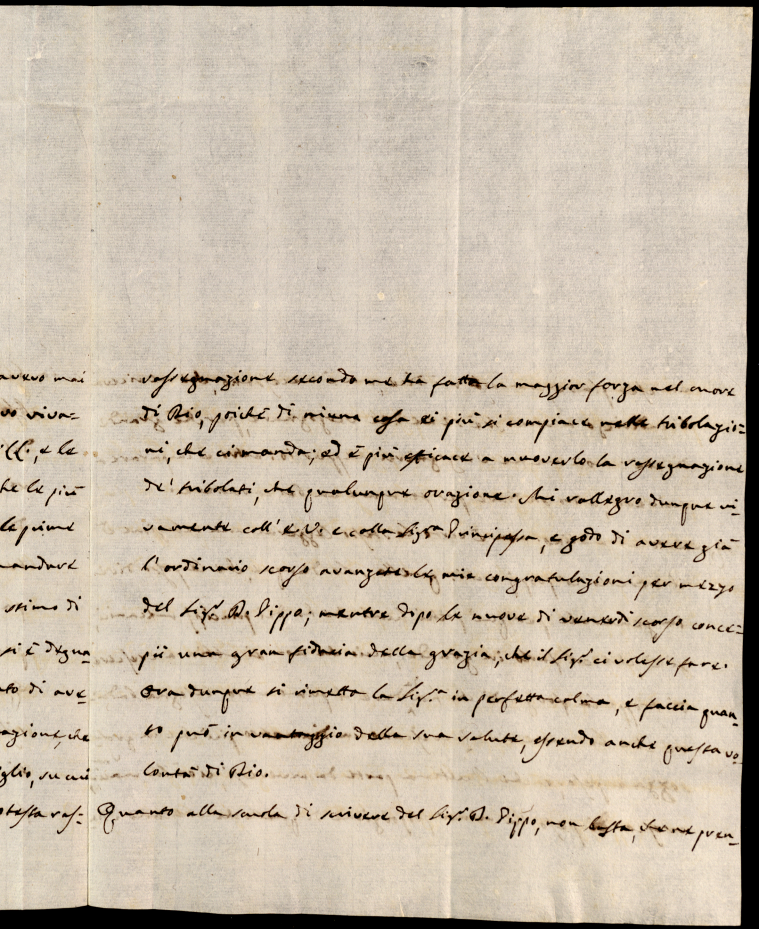 avevo mai
vo viva=
ill. e le
he le più
le prime
mandare
ssimo di
si è degna
to di ave=
azione, che
iglio, su cui
otesta ras=
rassegnazione secondo me ha fatta la maggior forza nel cuore
di Dio, poiché di niuna cosa ei più si compiace nelle tribolazio=
ni, che ci manda; ed è più efficace a muoverlo la rassegnazione
de' tribolati, che qualunque orazione. Mi rallegro dunque vi=
vamente coll' E. V. e colla Sig.ra Principessa, e godo di avere già
l'ordinario scorso avanzate le mie congratulazioni per mezzo
del Sig.r D. Pippo; mentre dopo le nuove di venerdì scorso conce=
pii una gran fiducia della grazia, che il Sig.r ci volesse fare.
Ora dunque si rimetta la Sig.ra in perfetta calma, e faccia quan=
to può in vantaggio della sua salute, essendo anche questa vo=
lontà di Dio.
Quanto alla scuola di scrivere del Sig.r D. Pippo, non basta, che ne pren=